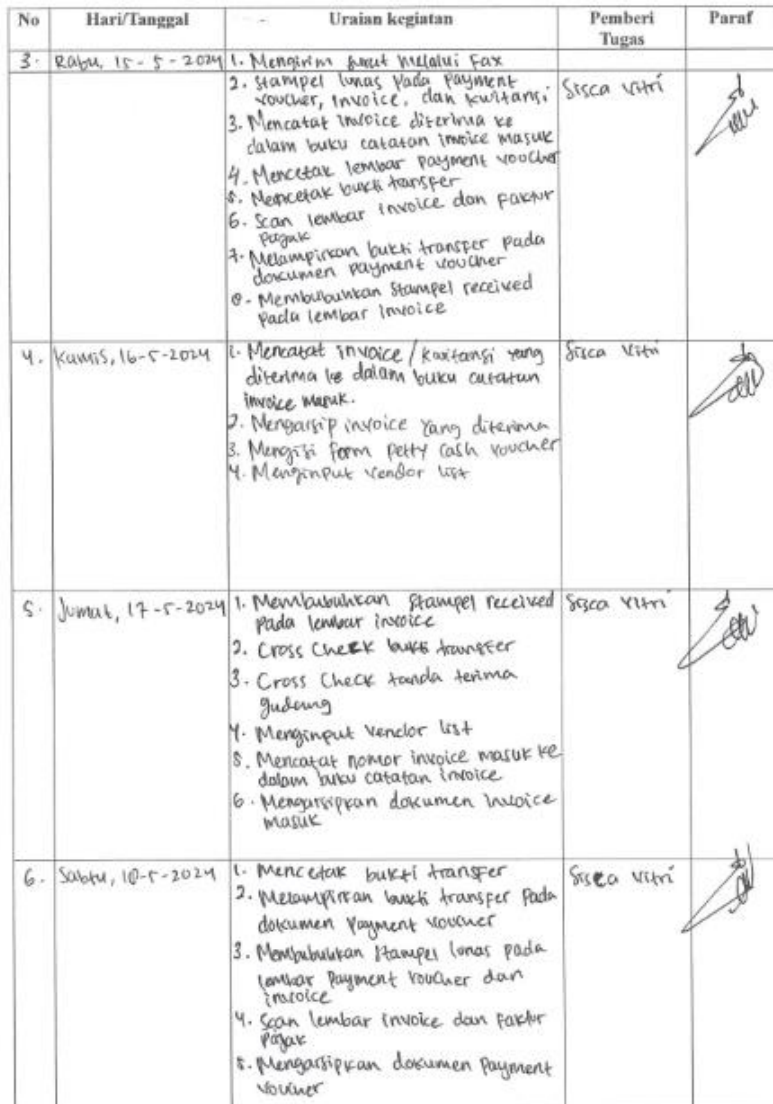 No Hari/Tanggal Uraian kegiatan Pemberi Tugas Paraf
3. Rabu, 15-5-2024 1. Mengirim surat melalui Fax
2. Stampel lunas pada payment
voucher, invoice, dan kwitansi
Sisca Vitri
3. Mencatat invoice diterima ke
dalam buku catatan invoice masuk
4. Mencetak lembar payment voucher
5. Mencetak bukti transfer
6. Scan lembar invoice dan faktur
pajak
7. Melampirkan bukti transfer pada
dokumen payment voucher
8. Membubuhkan stampel received
pada lembar invoice
4. Kamis, 16-5-2024 1. Mencatat invoice/kwitansi yang
Sisca Vitri
diterima ke dalam buku catatan
invoice masuk.
2. Mengarsip invoice yang diterima
3. Mengisi form petty cash voucher
4. Menginput vendor list
5. Jumat, 17-5-2024 1. Membubuhkan stampel received
Sisca Vitri
pada lembar invoice
2. Cross Check bukti transfer
3. Cross Check tanda terima
gudang
4. Menginput vendor list
5. Mencatat nomor invoice masuk ke
dalam buku catatan invoice
6. Mengarsipkan dokumen invoice
masuk
6. Sabtu, 18-5-2024 1. Mencetak bukti transfer
Sisca Vitri
2. Melampirkan bukti transfer pada
dokumen payment voucher
3. Membubuhkan stampel lunas pada
lembar payment voucher dan
invoice
4. Scan lembar invoice dan faktur
pajak
5. Mengarsipkan dokumen payment
voucher